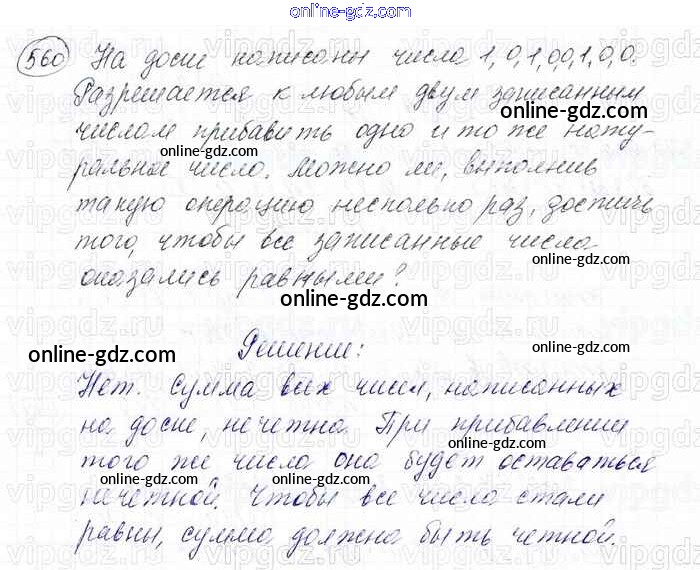 online-gdz.com
560 На доске написаны числа 1, 0, 1, 0, 0, 1, 0, 0.
Разрешается к любым двум записанным
числам прибавить одно и то же нату-
ральное число. Можно ли, выполнив
такую операцию несколько раз, достичь
того, чтобы все записанные числа
оказались равными?
Решение:
Нет. Сумма всех чисел, написанных
на доске, нечетна. При прибавлении
того же числа она будет оставаться
нечетной. Чтобы все числа стали
равны, сумма должна быть четной.
online-gdz.com
online-gdz.com
online-gdz.com
online-gdz.com
online-gdz.com
online-gdz.com
online-gdz.com
online-gdz.com